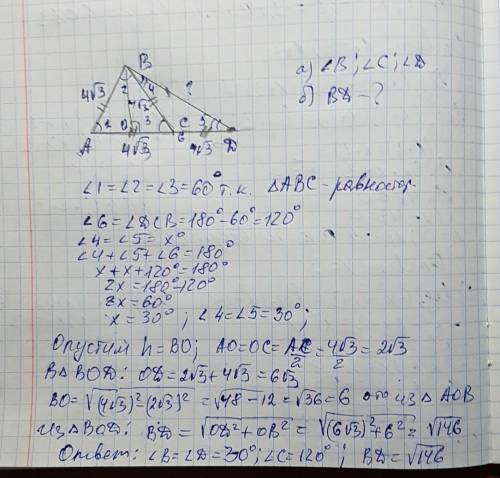 B
а) ∠B; ∠C; ∠D
?
б) BD - ?
4√3
2
4
4√3
1
O
3
C
5
A
4√3
6
4√3
D
∠1=∠2=∠3=60° т.к. △ABC - равностор
∠6=∠DCB=180°-60°=120°
∠4=∠5=x°
∠4+∠5+∠6=180°
x+x+120°=180°
2x=180°-120°
2x=60°
x=30°; ∠4=∠5=30°;
Опустим h=BO; AO=OC=AC/2=4√3/2=2√3
В△BOD: OD=2√3+4√3=6√3
BO=√(4√3)²(2√3)²=√48-12=√36=6 это из △AOB
из△BOD: BD=√OD²+OB²=√(6√3)²+6²=√146
Ответ: ∠B=∠D=30°; ∠C=120°; BD=√146